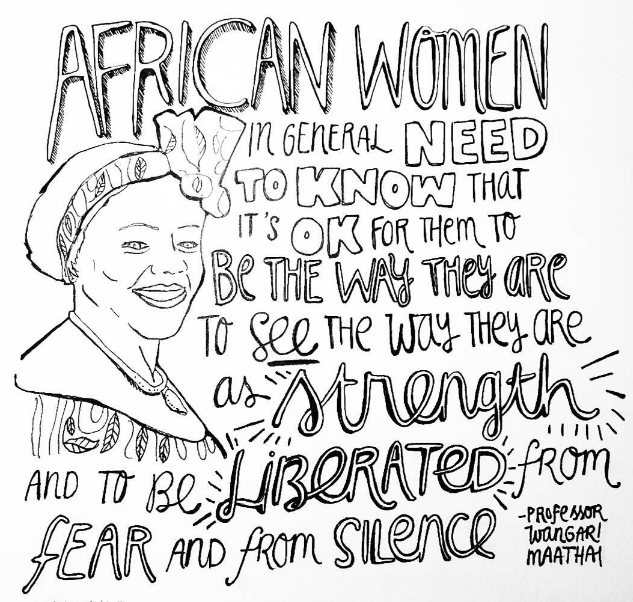 AFRICAN WOMEN
IN GENERAL NEED
TO KNOW THAT
IT'S OK FOR THEM TO
BE THE WAY THEY ARE
TO SEE THE WAY THEY ARE
as strength
AND TO BE LIBERATED from
FEAR AND from SILENCE
-PROFESSOR
WANGARI
MAATHAI